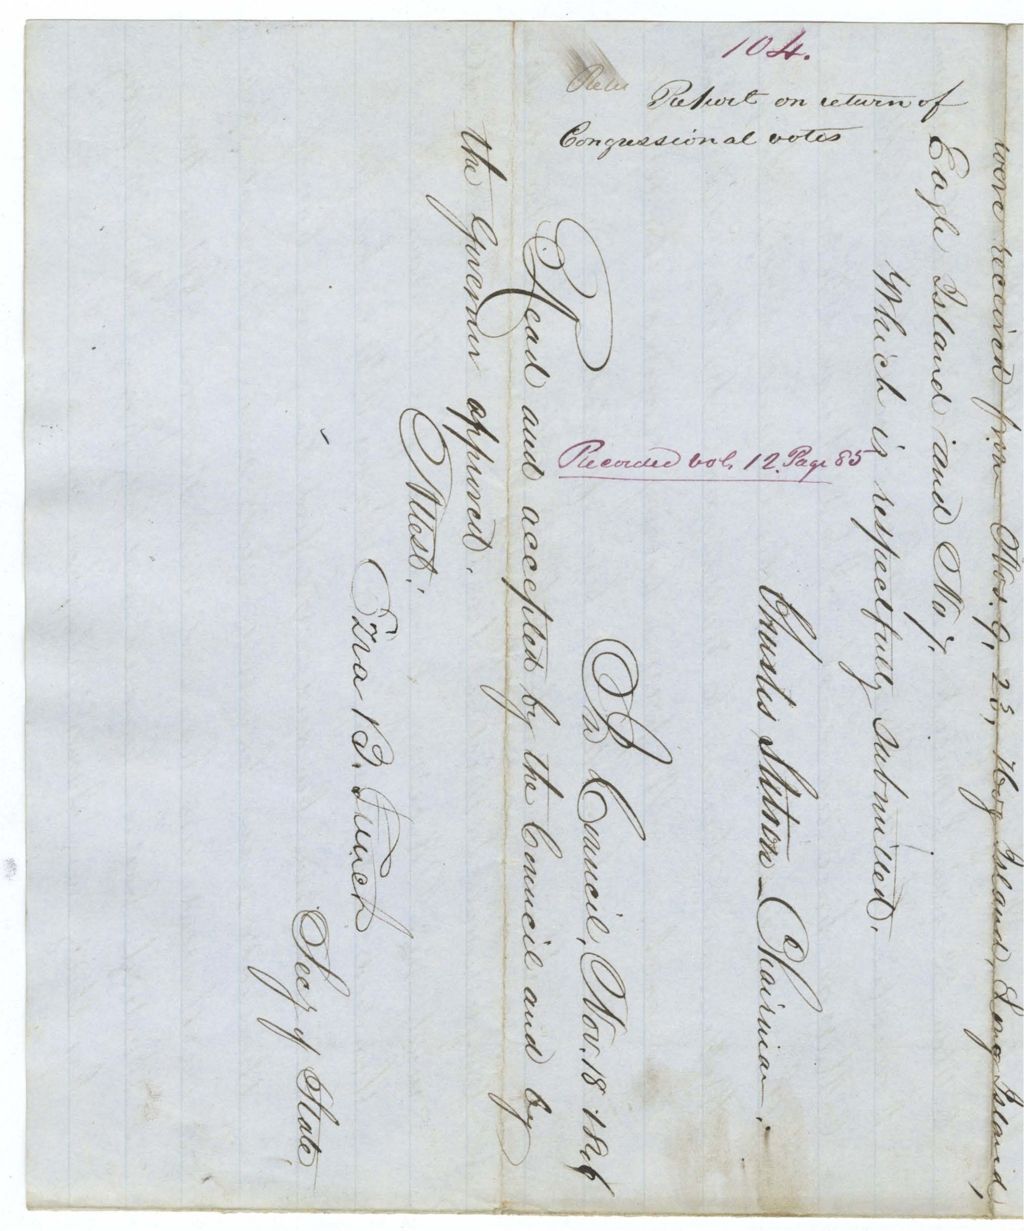 104.
Report on return of
Congressional votes
were received from Nos. 9, 23, Hog Island, Long Island,
Eagle Island and No 7.
Which is respectfully submitted.
Stetson Chairman.
Recorded vol. 12. Page 85
In Council, Nov. 18 1846
Read and accepted by the Council and by
the Governor approved.
Attest:
Ezra B. French
Secy of State